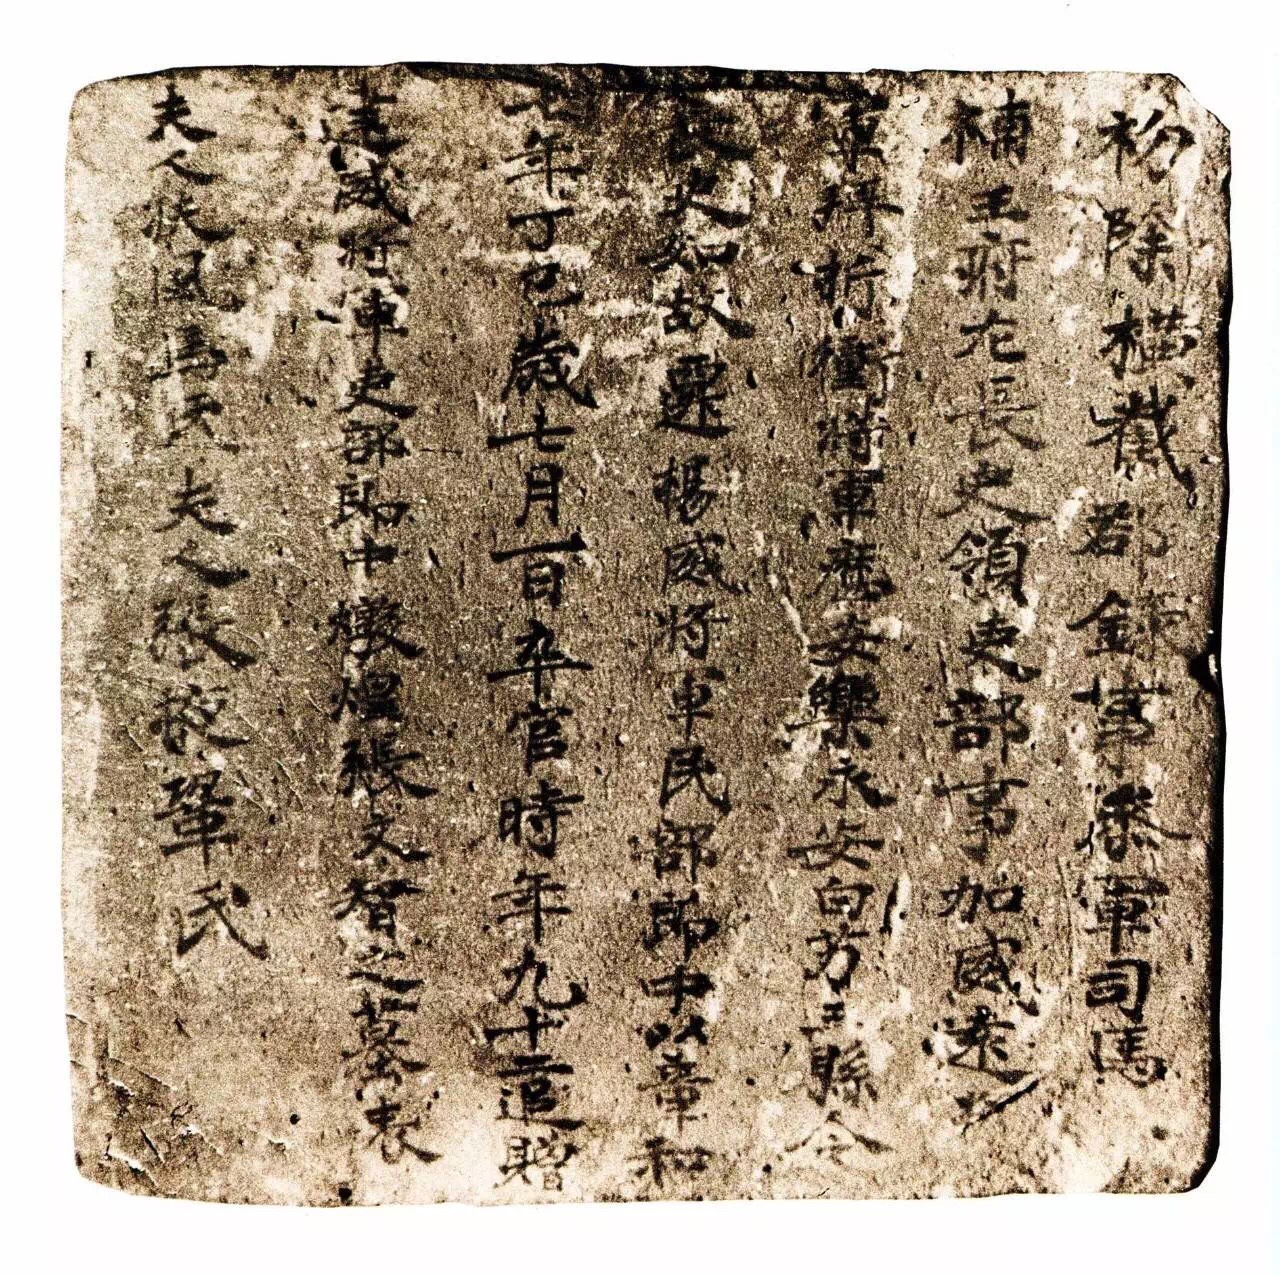 初除橫截郡錄事叅軍司馬
補王府左長史領吏部事加威遠將
軍拜折衝將軍歷安樂永安白芳三縣令
長史如故遷楊威將軍民部郎中以章和
七年丁巳歲七月一日卒官時年九十二追贈
建威將軍吏部郎中燉煌張文智之墓表
夫人扶風馬氏夫人張掖鞏氏